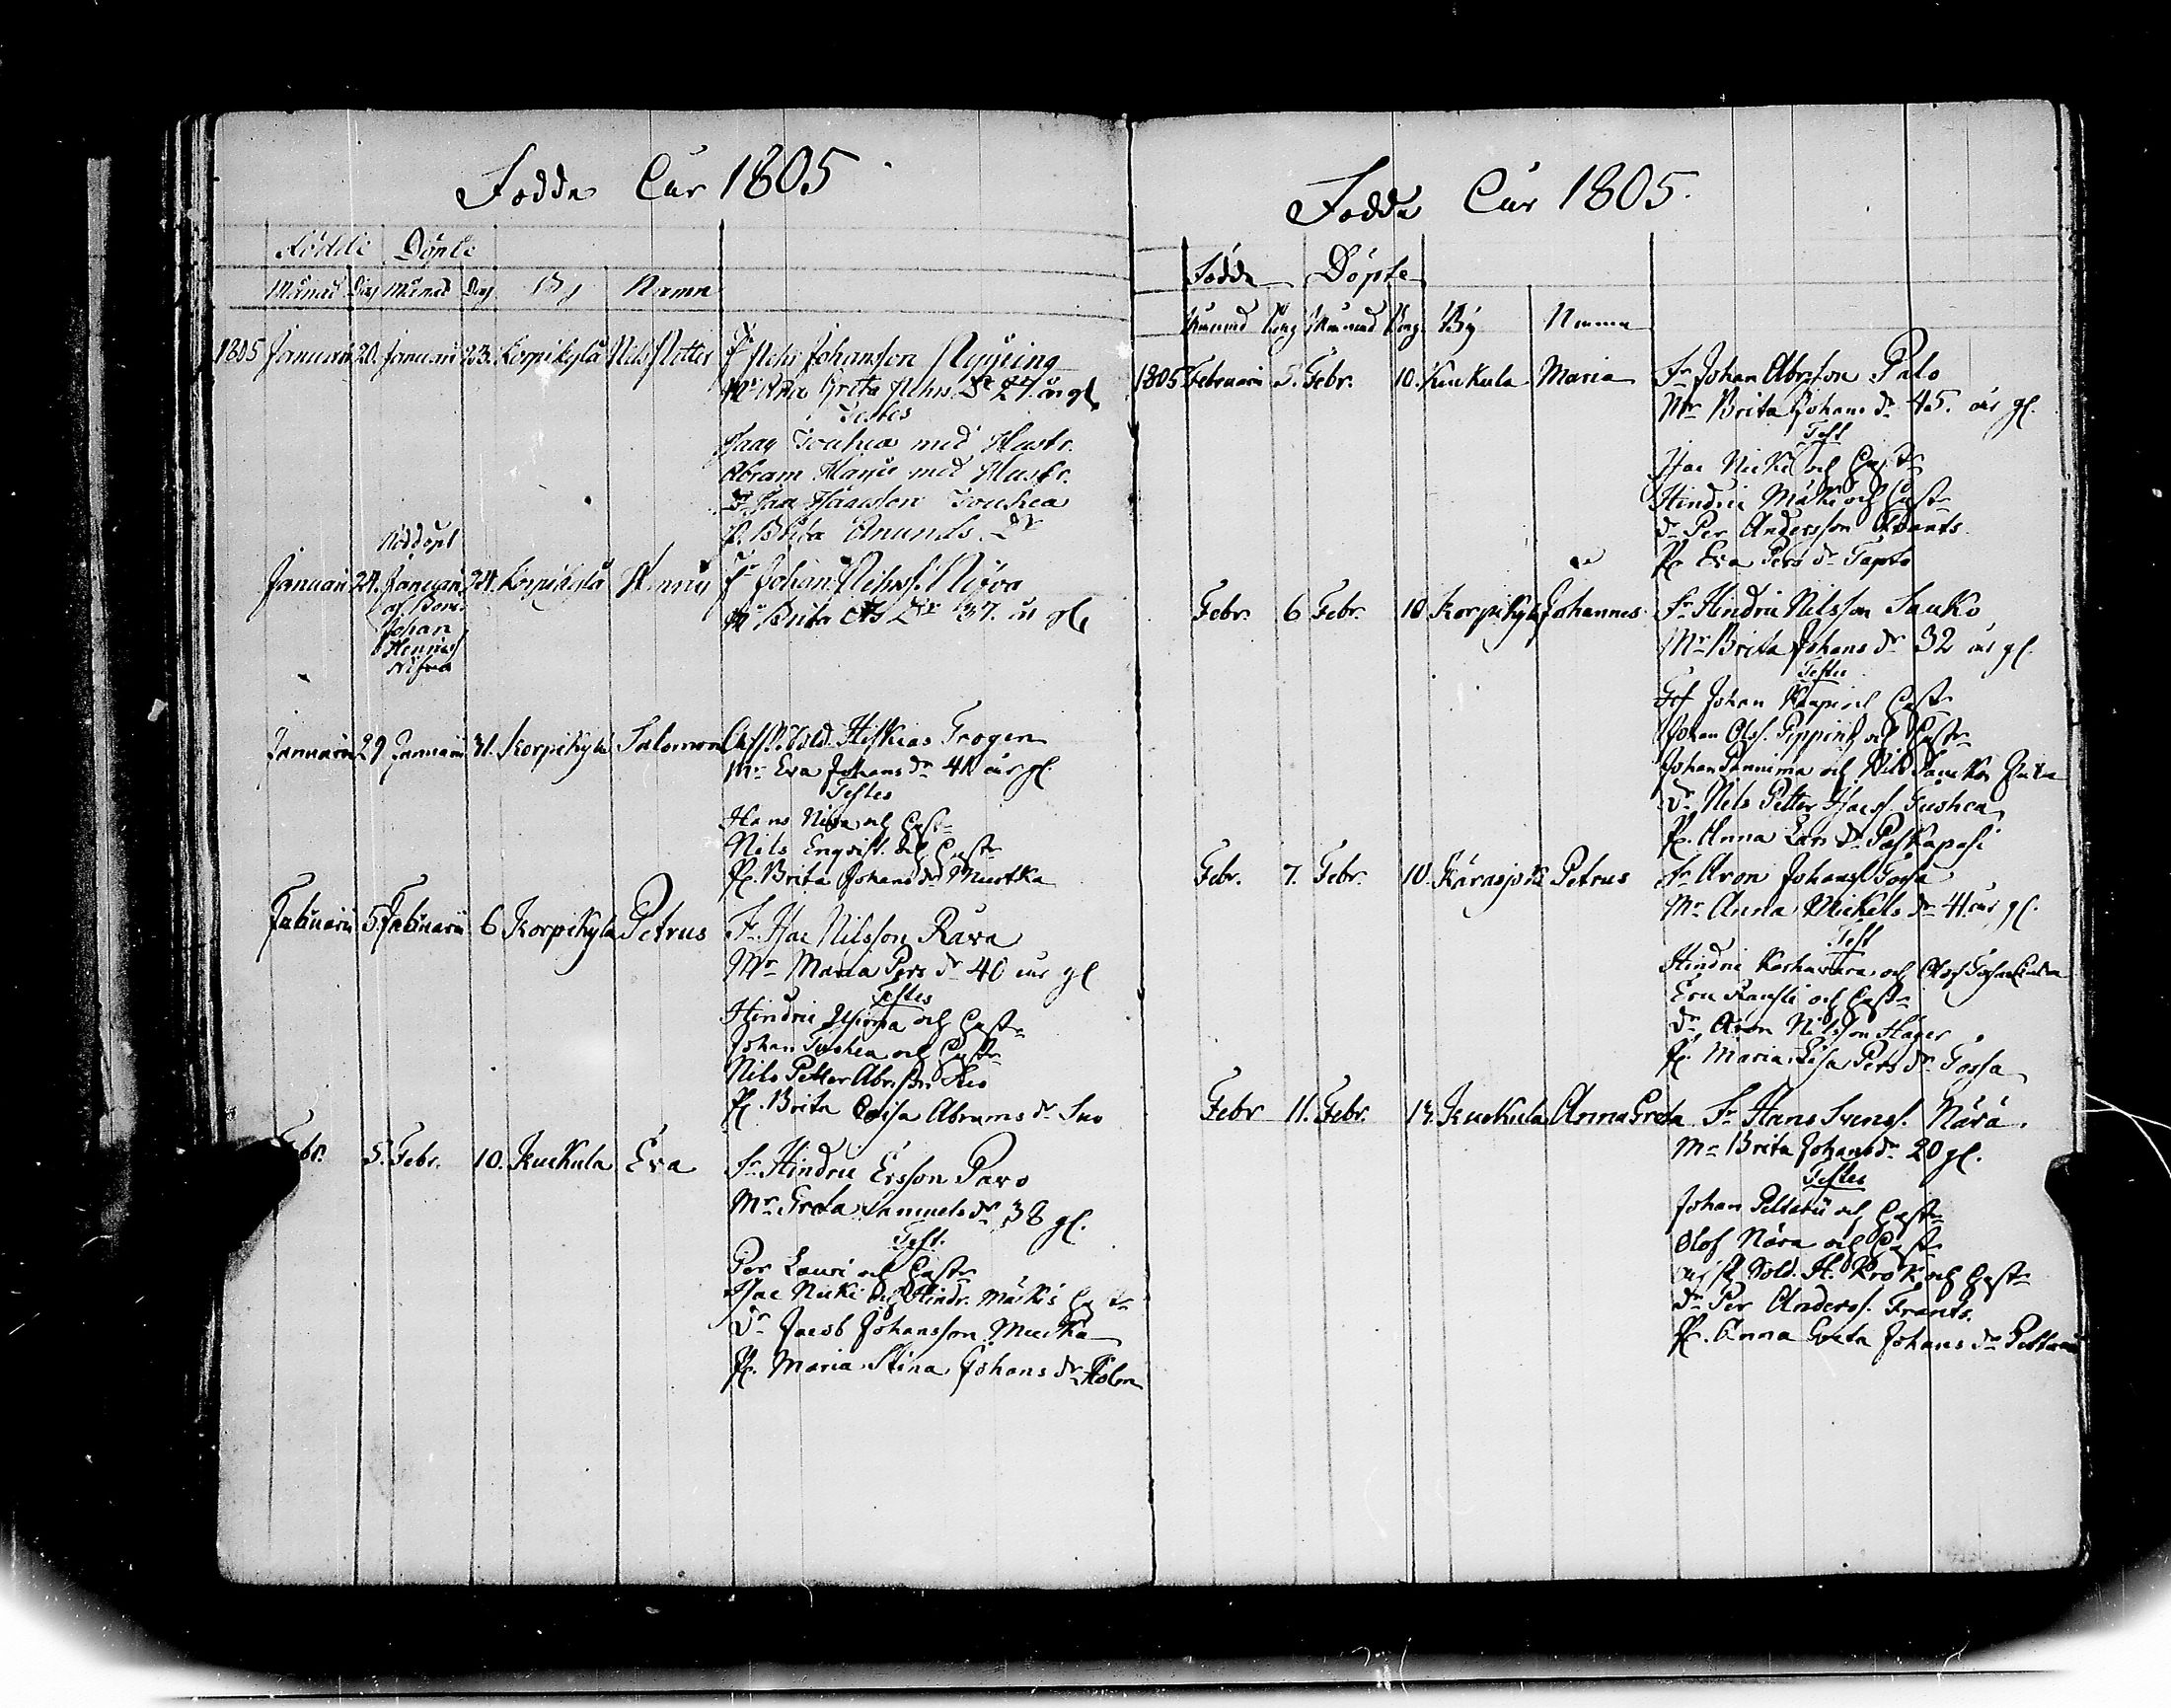 Födda Åår 1805
Födde Döpte
Månad Dag Månad Dag By Namn
1805 Januarii 20. Januarii 23. Korpikylä Nils Petter Fr Nils Johansson Nyping
Mr Ana Greta Nilss Dr 27. år gl
Testes
Isaac Touhea med Hustr.
Abram Harju med Hustr.
Dr Isac Isaacsson Touhea
P. Brita Anunds Dr
Nöddöpt
Januarii 24. Januarii 24. Korpikylä Henric Fr Johan Nilss. Nifva
af Bon.
Johan
Henriss
Nifva
Mr Brita Ols Dr 37. år gl
Januarii 29 Januarii 31. Korpikylä Salomon Afsk. Sold. Hiskias Trogen
Mr Eva Johans dr 41 år gl.
Testes
Hans Niva och Hustr
Nils Enqvist och Hustr
P. Brita Johans dr Muotka
Februarii 5. Februarii 6 Korpikylä Petrus Fr Isac Nilsson Rava
Mr Maria Pers dr 40 år gl
Testes
Hindric och Hustr
Johan Touhea och Hustr
Nils Petter Abrss.
P. Brita Cajsa Abrams dr Suo
Febr. 5. Febr. 10. Kuckula Eva Fr Hindric Ersson Pavo
Mr Greta Samuels dr 38 gl.
Test.
Per Lauri och Hustr
Isac Nicki och Hindr. Mäkis Hustr
Dr Jacob Johansson Mucka
P. Maria Stina Johans dr Kölen
Födda Åår 1805.
Födda Döpte
Månad Dag Månad Dag By Namn
1805 Februarii 5. Febr. 10. Kuckula Maria Fr Johan Abrsson Palo
Mr Brita Johans dr 45. år gl.
Test
Isac Nicki och Hustr
Hindric Mäki och Hustr
Dr Per Andersson Frants
P. Eva Pers dr Tapio
Febr. 6 Febr. 10 Korpikylä Johannes Fr Hindric Nilsson Sauko
Mr Brita Johans dr 32 år gl.
Testes
Johan Kaupi och Hustr
Johan Olss. Pipping och Hustr
Johan Pannima och Nils Sauckos
Dr Nils Petter Isacss. Touhea
P. Anna Lars dr
Febr. 7. Febr. 10. Karasjoki Petrus Fr Aron Johanss. Tossa
Mr Anna Mickels dr 41. år gl.
Test
Hindric Koskavara och Olof Tossa
Eric och Hustr
Dr Aron Nilsson Häger
P. Maria Lisa Pers dr Tossa
Febr 11. Febr. 13. Kuckula Anna Greta Fr Hans Svenss. Närä.
Mr Brita Johans dr 20 gl.
Testes
Johan Peltari och Hustr
Olof Nära och Hustr
Afsk Sold. H. Krok och Hustr
Dr Per Anderss. Frants.
P. Anna Greta Johans dr Peltari